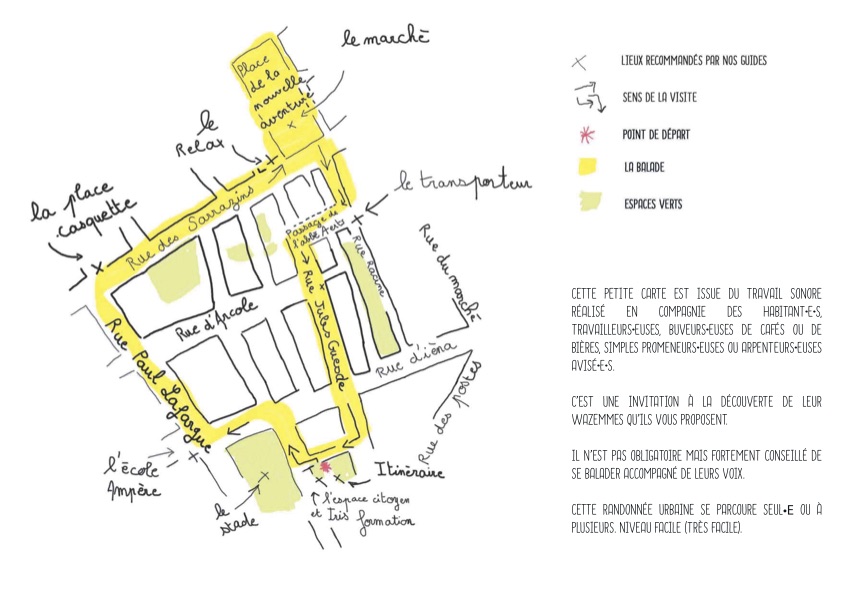 le marchè
Place
de la
nouvelle
aventure
le
Relax
la place
casquette
le transporteur
Rue des Sarrazins
Passage de
l'abbé Aerts
Rue Racine
Rue du marché
Rue Jules Guesde
Rue d'Arcole
Rue d'ièna
Rue Paul Lafargue
Rue des postes
l'école
Ampère
le
stade
Itinèraire
l'espace citoyen
et Iris formation
LIEUX RECOMMANDÉS PAR NOS GUIDES
SENS DE LA VISITE
POINT DE DÉPART
LA BALADE
ESPACES VERTS
CETTE PETITE CARTE EST ISSUE DU TRAVAIL SONORE
RÉALISÉ EN COMPAGNIE DES HABITANT•E•S,
TRAVAILLEURS•EUSES, BUVEURS•EUSES DE CAFÉS OU DE
BIÈRES, SIMPLES PROMENEURS•EUSES OU ARPENTEURS•EUSES
AVISÉ•E•S.
C'EST UNE INVITATION À LA DÉCOUVERTE DE LEUR
WAZEMMES QU'ILS VOUS PROPOSENT.
IL N'EST PAS OBLIGATOIRE MAIS FORTEMENT CONSEILLÉ DE
SE BALADER ACCOMPAGNÉ DE LEURS VOIX.
CETTE RANDONNÉE URBAINE SE PARCOURE SEUL•E OU À
PLUSIEURS. NIVEAU FACILE (TRÈS FACILE).